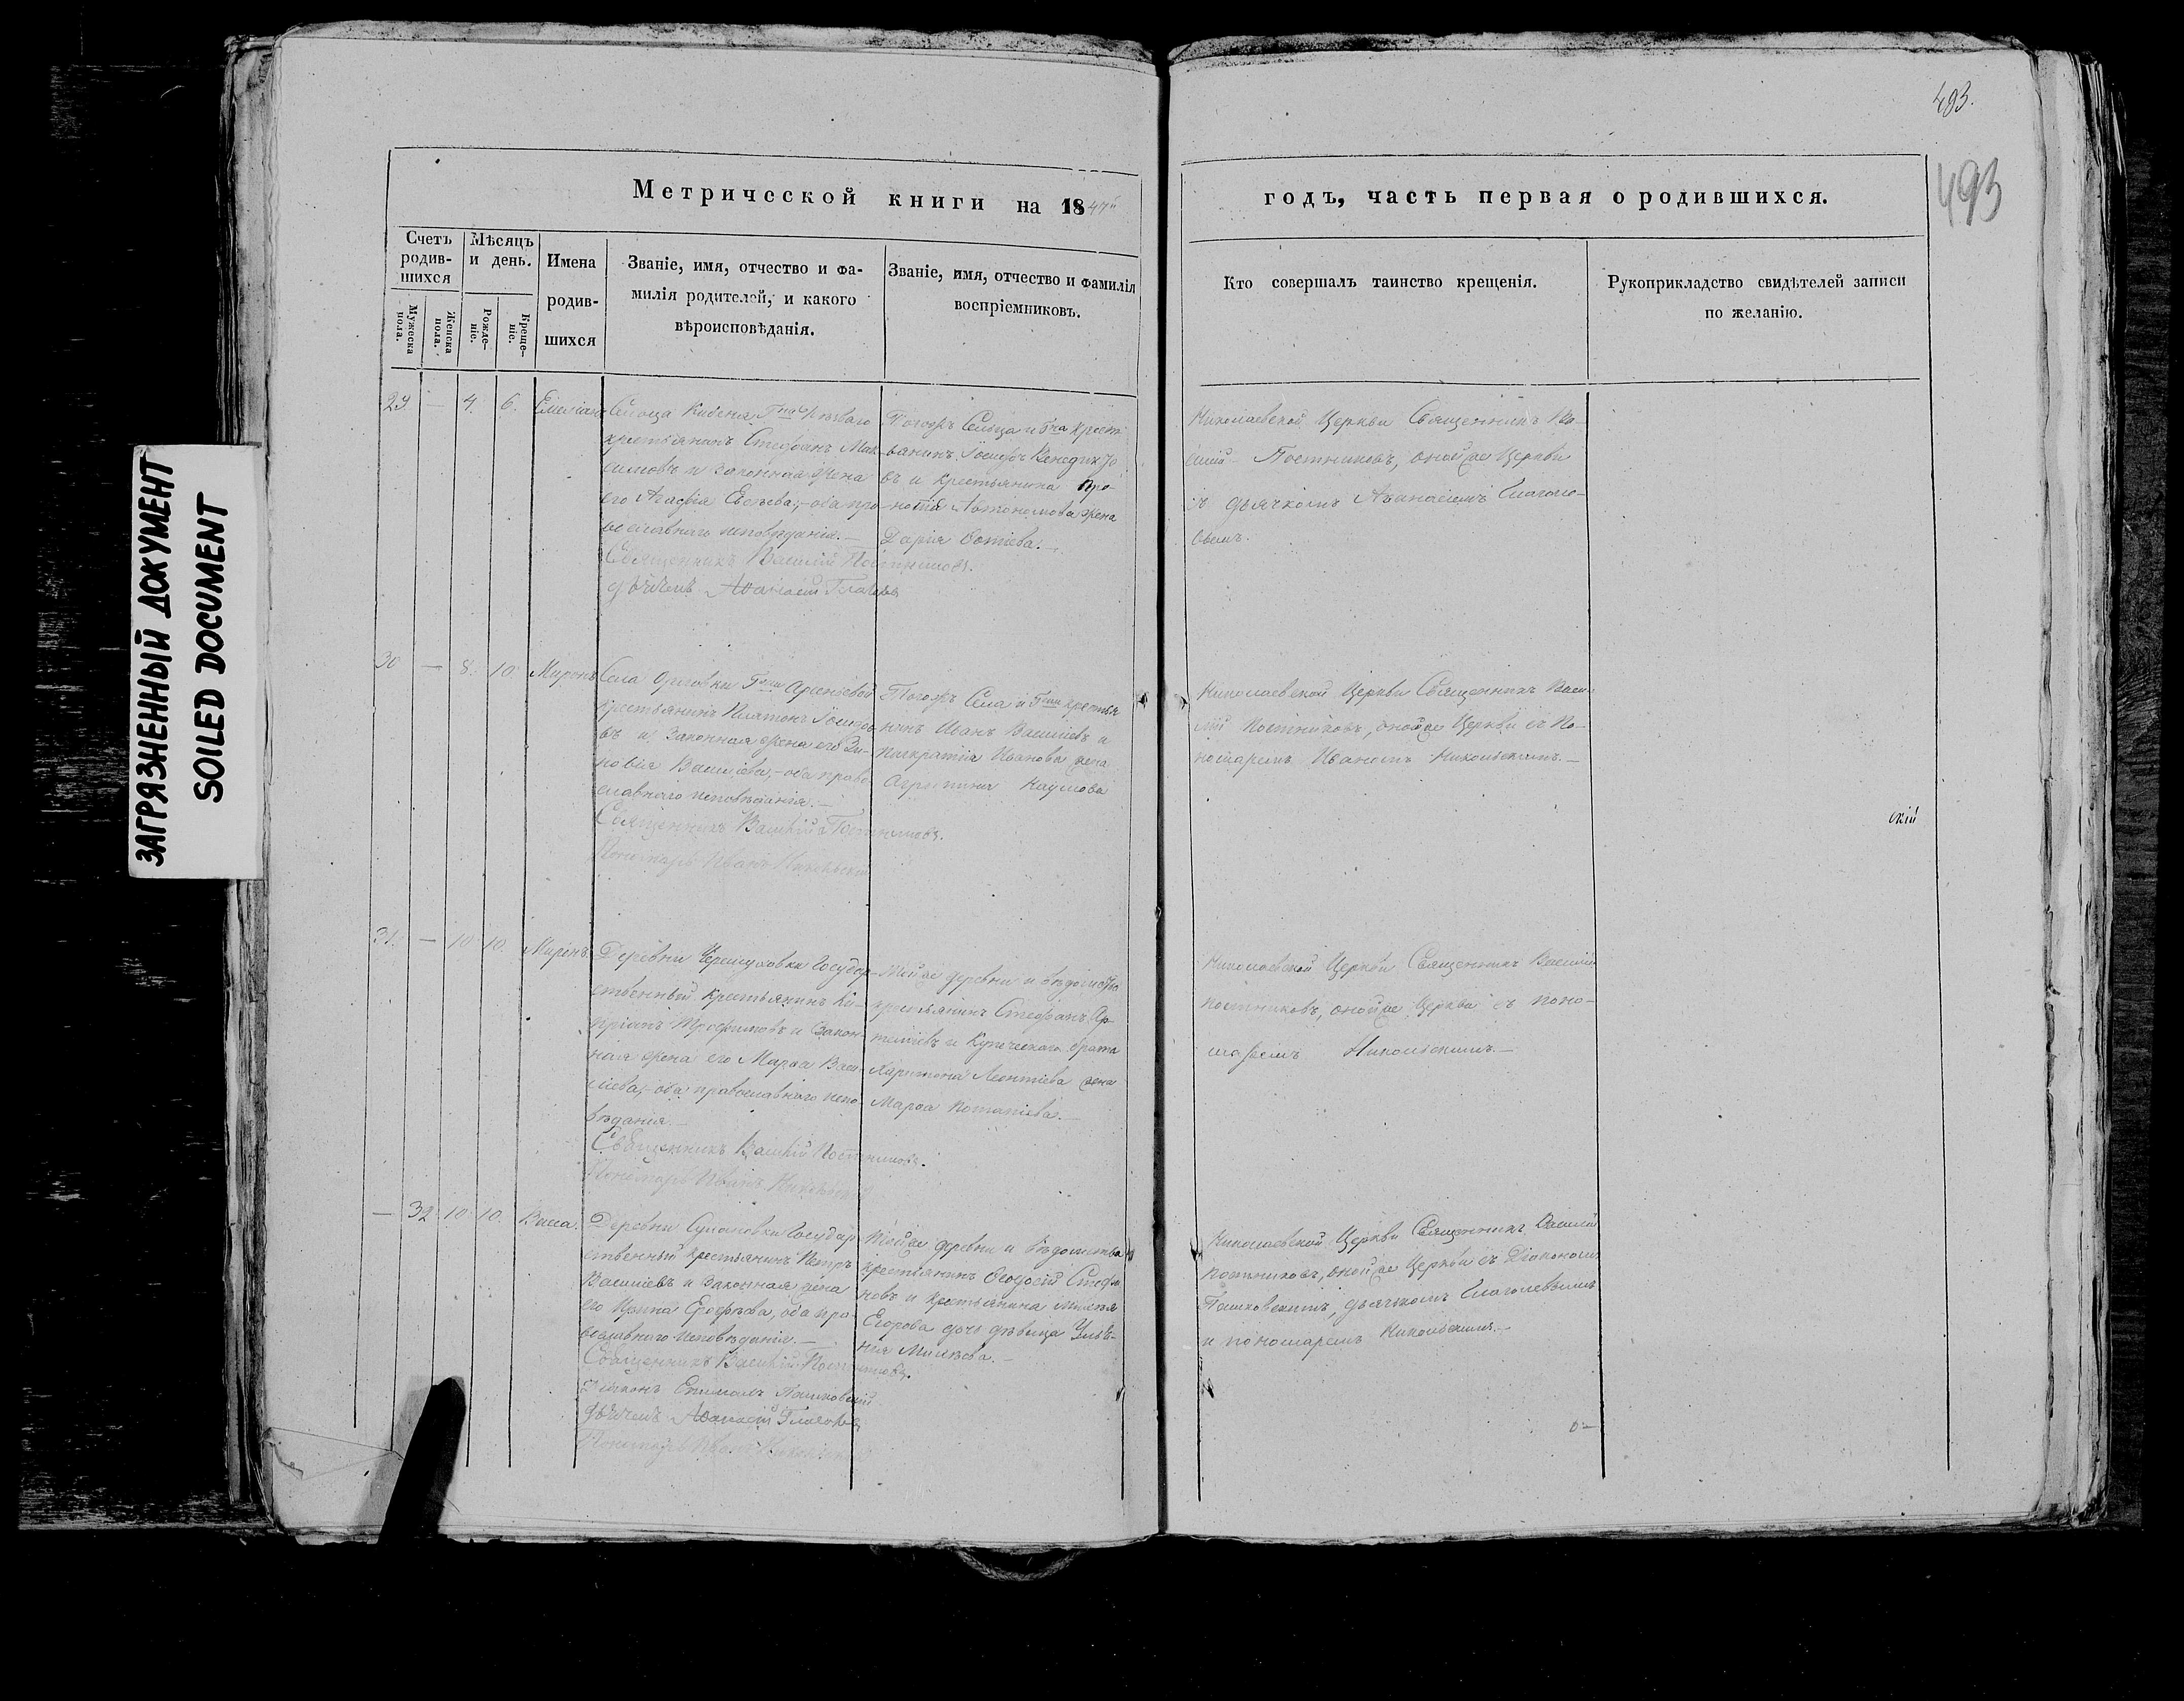 493.
493
ЗАГРЯЗНЕННЫЙ ДОКУМЕНТ
SOILED DOCUMENT
Метрической книги на 1847й
годъ, часть первая о родившихся.
Счетъ родив-шихся
Мужеска пола.
Женска пола.
Мѣсяцъ и день.
Рожде-ніе.
Креще-ніе.
Имена родив-шихся
Званіе, имя, отчество и фа-
милія родителей, и какого
вѣроисповѣданія.
Званіе, имя, отчество и фамилія
воспріемниковъ.
Кто совершалъ таинство крещенія.
Рукоприкладство свидѣтелей записи
по желанію.
29 — 4. 6.
крестьянинъ Стефанъ Мак-
симовъ и законная жена
его Агафія — оба пра-
вославнаго исповѣданія. —
Священникъ Василій Постниковъ.
Аѳанасій
Сельца и Гна крест-
ванинъ
въ и крестьянина Про-
Автономова жена
Дарья Фотіева. —
Николаевской Церкви Священникъ Ва-
силій Постниковъ, оной же Церкви
съ дьячкомъ Аѳанасіемъ Глаголе-
вымъ.
30 — 8. 10 Миронъ
Села Гжи Арсеньевой
крестьянинъ Платонъ
въ и законная жена его Зи-
новія Васильева, — оба право-
славнаго исповѣданія. —
Священникъ Василій Постниковъ.
Пономарь Иванъ Никольскій
Села и Гжи крестья
нинъ Иванъ Васильевъ и
Панкратія Иванова жена
Агрипина Наумова
Николаевской Церкви Священникъ Васи-
лій Постниковъ, оной же Церкви съ По-
номаремъ Иваномъ Никольскимъ. —
скій
31. — 10 10. Миронъ.
Деревни Черемуховки Государ-
ственный крестьянинъ Ки-
пріанъ Трофимовъ и Закон-
ная жена его Марѳа Васи-
льева, — оба православнаго испо-
вѣданія. —
Священникъ Василій Постниковъ.
Пономарь Иванъ Никольскій
Той же деревни и вѣдомства
крестьянинъ Стефанъ Ар-
темьевъ и Купеческаго брата
Харитона Леонтіева жена
Марѳа Потапіева. —
Николаевской Церкви Священникъ Василій
Постниковъ, оной же Церкви съ поно-
маремъ Никольскимъ. —
— 32. 10 10. Васса.
Деревни Государ-
ственный крестьянинъ Петръ
Васильевъ и законная жена
его Ирина Ерофѣева, оба пра-
вославнаго исповѣданія. —
Священникъ Василій Постниковъ.
Діаконъ
Аѳанасій
Пономарь Иванъ Никольскій
Той же деревни и вѣдомства
крестьянинъ Ѳеодосій Стефа
новъ и крестьянина
Егорова дочь дѣвица Улья-
нія
Николаевской Церкви Священникъ Василій
Постниковъ, оной же Церкви съ Діакономъ
дьячкомъ Глаголевымъ
и пономаремъ Никольскимъ. —